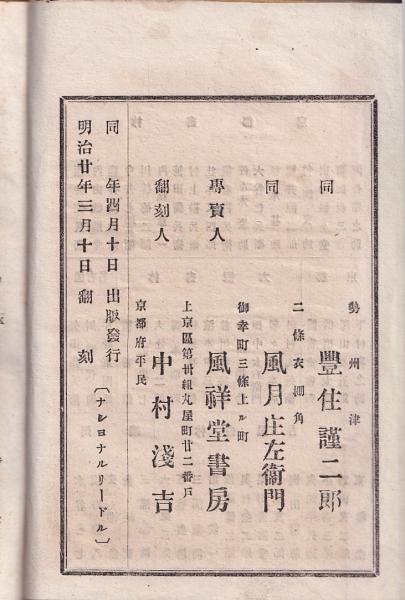 明治廿年三月十日 翻刻
同 年四月十日 出版發行
〔ナシヨナルリードル〕
翻刻人
京都府平民
中村淺吉
上京區第卅組丸屋町廿二番戸
專賣人
風祥堂書房
御幸町三條上ル町
同
風月庄左衞門
二條衣棚角
同
豐住謹二郎
勢州津